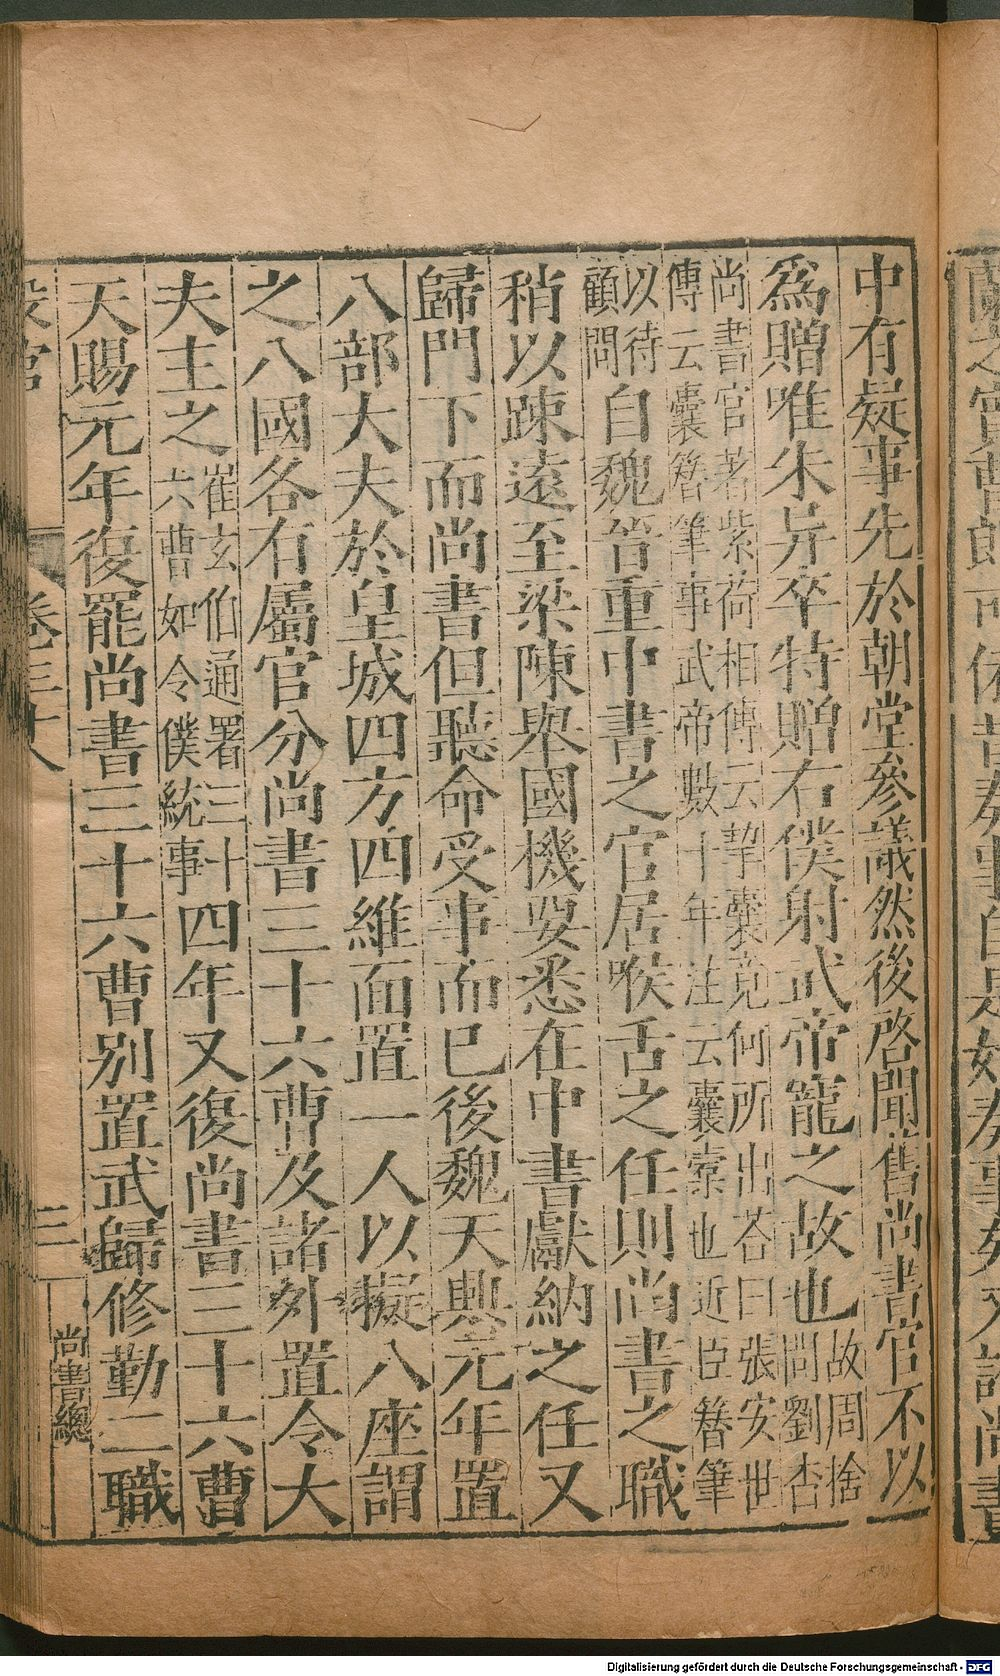 中有疑事先於朝堂參議然後啓聞舊尚書官不以
爲贈唯朱异卒特贈右僕射武帝寵之故也故周捨
問劉杳
尚書官著紫荷相傳云挈囊竟何所出荅曰張安世
傳云囊簪筆事武帝數十年注云囊橐也近臣簪筆
以待
顧問自魏晉重中書之官居喉舌之任則尚書之職
稍以踈遠至梁陳舉國機要悉在中書獻納之任又
歸門下而尚書但聽命受事而已後魏天興元年置
八部大夫於皇城四方四維面置一人以擬八座謂
之八國各有屬官分尚書三十六曹及諸外置令大
夫主之崔玄伯通署三十
六曹如令僕統事四年又復尚書三十六曹
天賜元年復罷尚書三十六曹別置武歸修勤二職
設官
卷三十八
三
尚書總
Digitalisierung gefördert durch die Deutsche Forschungsgemeinschaft - DFG